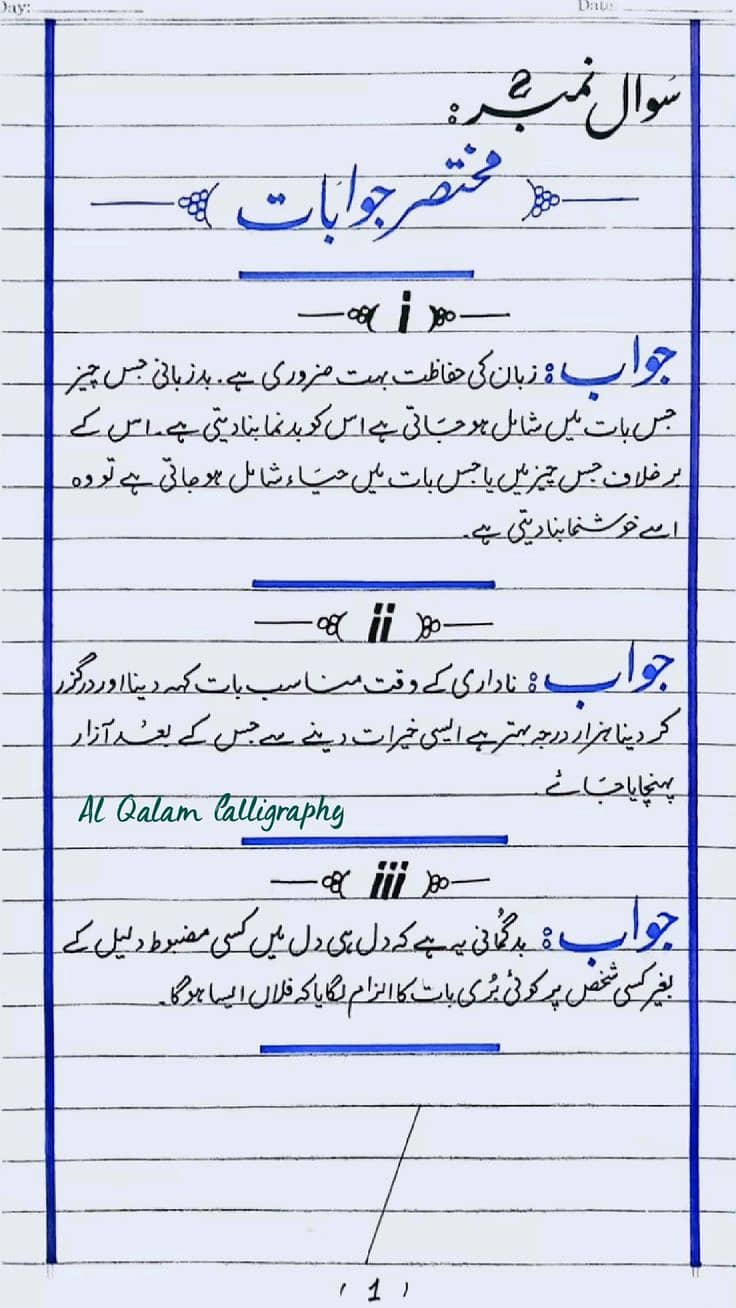 Day:
Date:
سوال نمبر 2:
مختصر جوابات
i
جواب: زبان کی حفاظت بہت ضروری ہے۔ بدزبانی جس چیز
جس بات میں شامل ہو جاتی ہے اس کو بدنما بنا دیتی ہے۔ اس کے
برخلاف جس چیز میں یا جس بات میں حیاء شامل ہو جاتی ہے تو وہ
اسے خوشنما بنا دیتی ہے۔
ii
جواب: ناداری کے وقت مناسب بات کہہ دینا اور درگزر
کر دینا ہزار درجہ بہتر ہے ایسی خیرات دینے سے جس کے بعد آزار
پہنچایا جائے۔
Al Qalam Calligraphy
iii
جواب: بدگمانی یہ ہے کہ دل ہی دل میں کسی مضبوط دلیل کے
بغیر کسی شخص پر کوئی بُری بات کا الزام لگایا کہ فلاں ایسا ہوگا۔
(1)